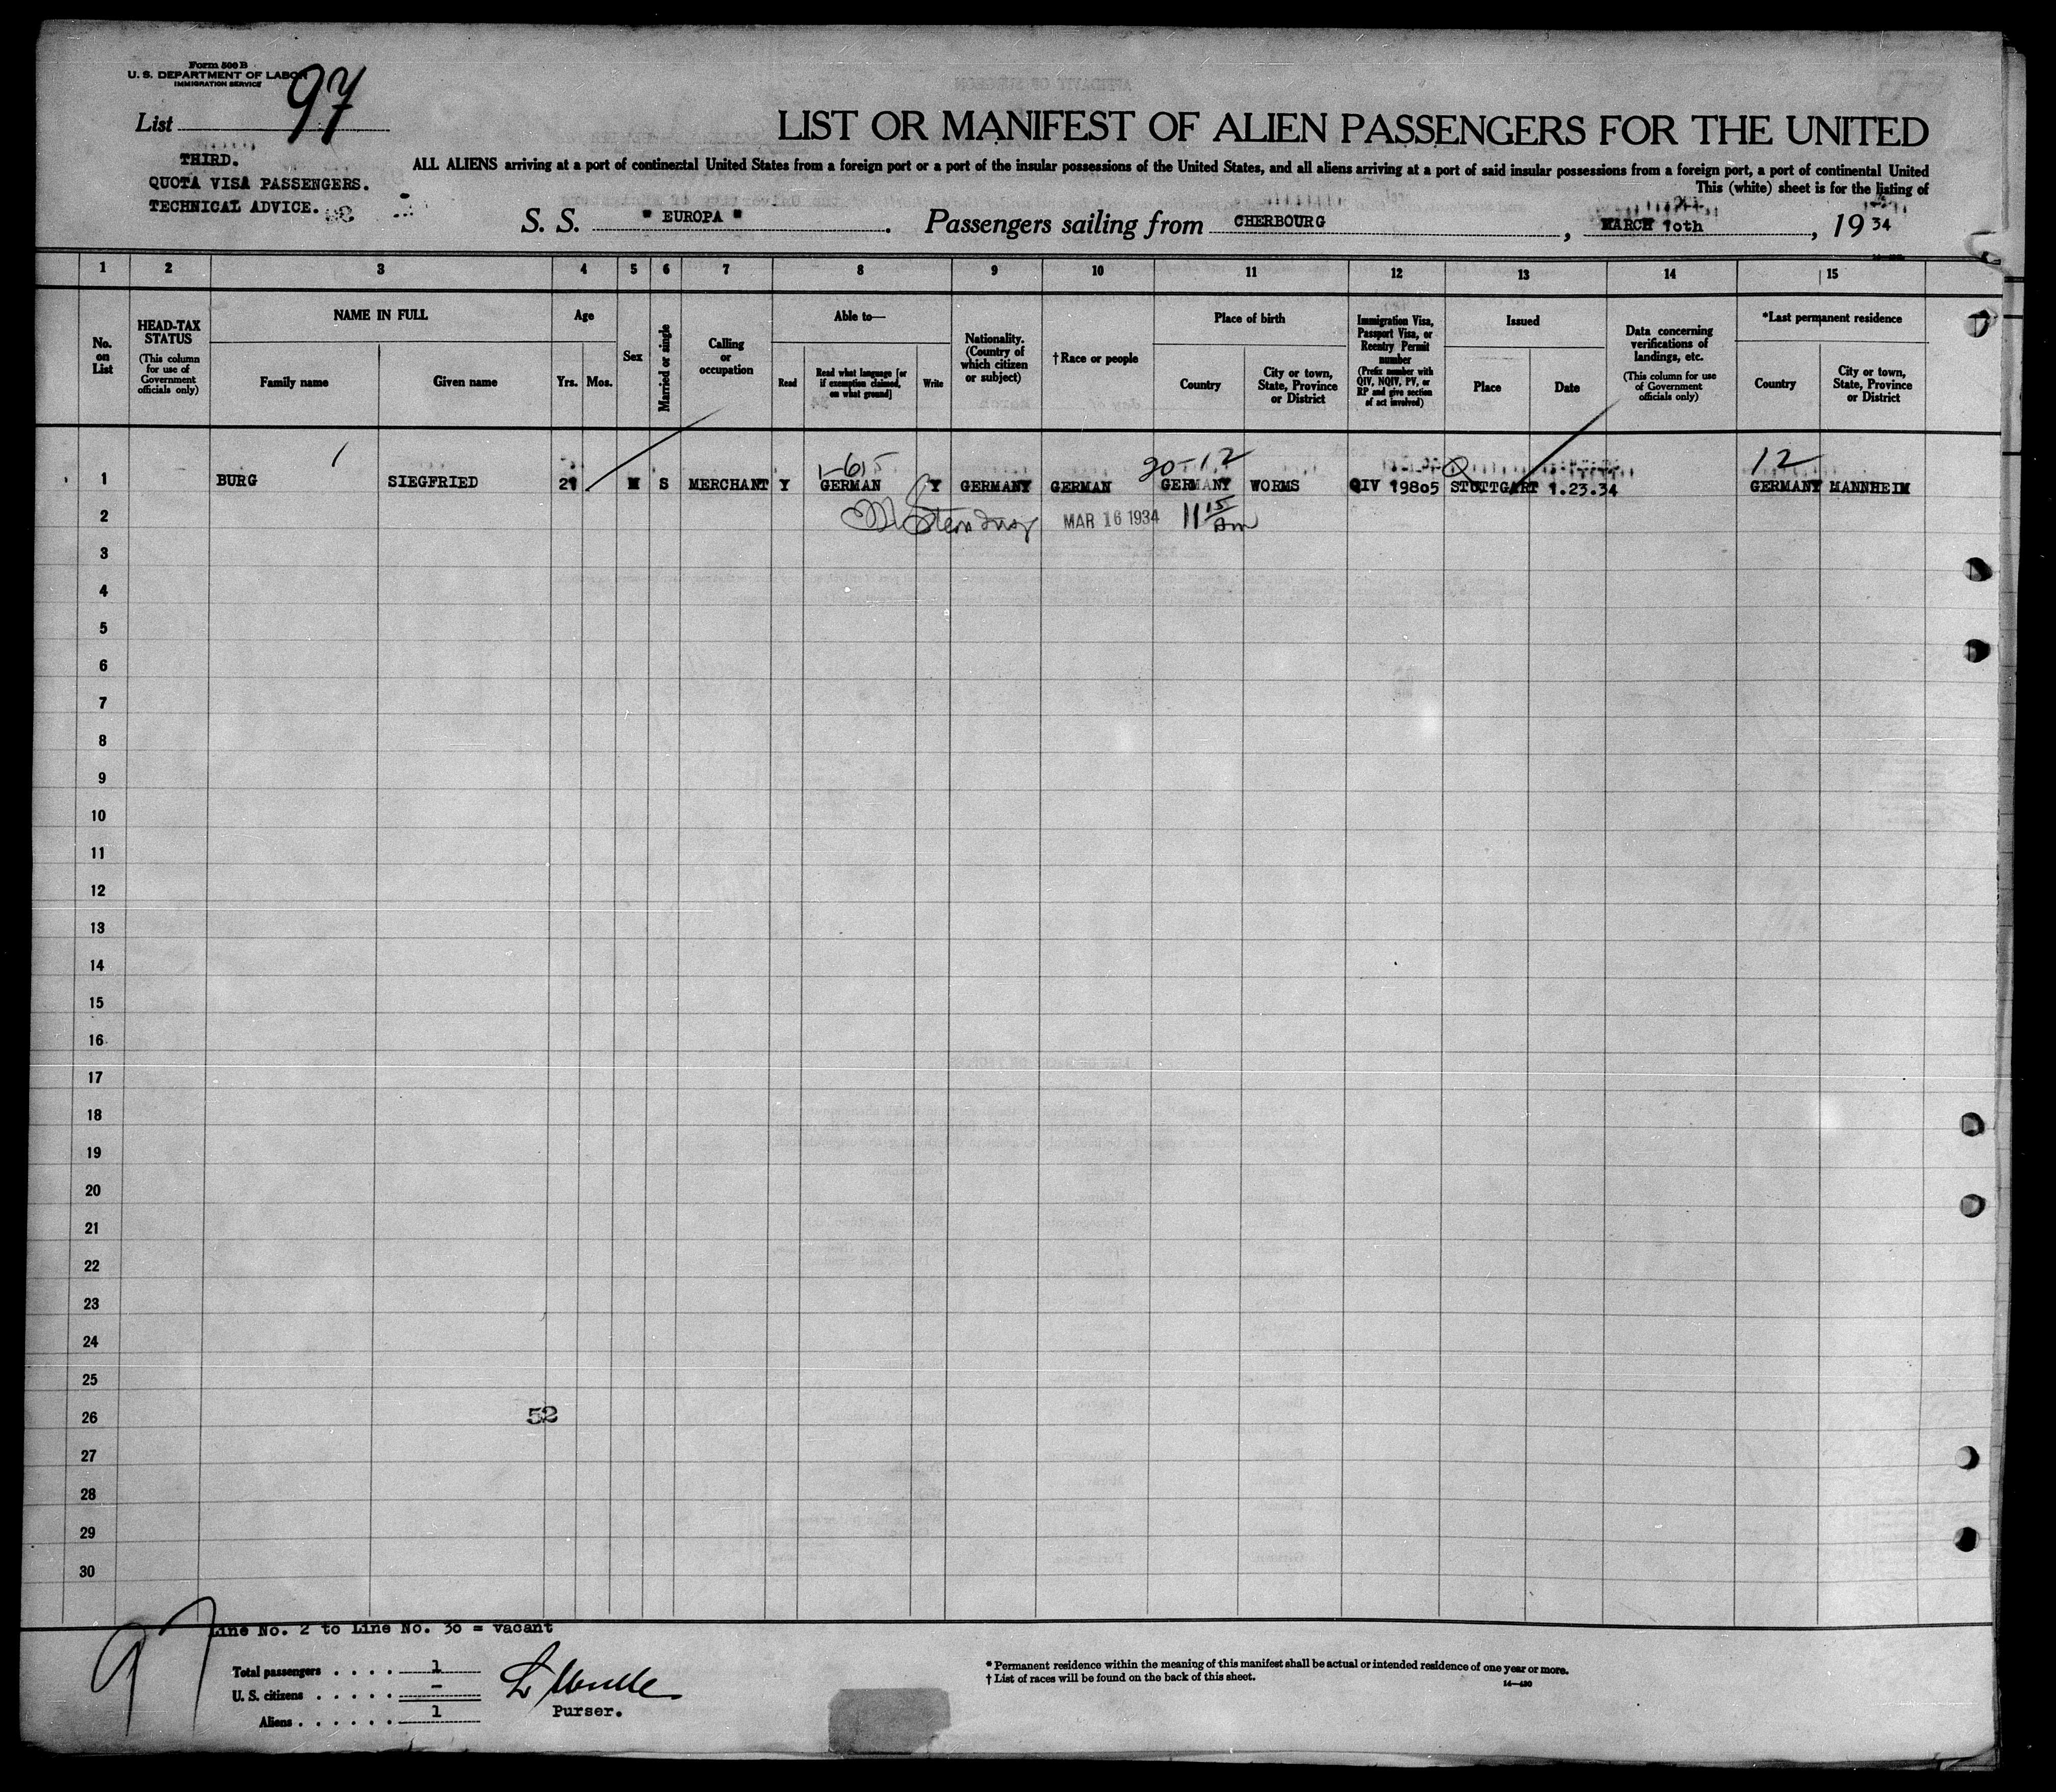 Form 500 B
U. S. DEPARTMENT OF LABOR
IMMIGRATION SERVICE
List 97
THIRD.
QUOTA VISA PASSENGERS.
TECHNICAL ADVICE.
LIST OR MANIFEST OF ALIEN PASSENGERS FOR THE UNITED
ALL ALIENS arriving at a port of continental United States from a foreign port or a port of the insular possessions of the United States, and all aliens arriving at a port of said insular possessions from a foreign port, a port of continental United
This (white) sheet is for the listing of
S. S. " EUROPA " . Passengers sailing from CHERBOURG , MARCH 10th , 19 34
1 2 3 4 5 6 7 8 9 10 11 12 13 14 15
No. on List
HEAD-TAX STATUS (This column for use of Government officials only)
NAME IN FULL
Family name Given name
Age
Yrs. Mos.
Sex
Married or single
Calling or occupation
Able to—
Read Read what language [or if exemption claimed, on what ground] Write
Nationality. (Country of which citizen or subject)
†Race or people
Place of birth
Country City or town, State, Province or District
Immigration Visa, Passport Visa, or Reentry Permit number (Prefix number with QIV, NQIV, PV, or RP and give section of act involved)
Issued
Place Date
Data concerning verifications of landings, etc. (This column for use of Government officials only)
*Last permanent residence
Country City or town, State, Province or District
1 12
1 BURG SIEGFRIED 21 M S MERCHANT Y GERMAN Y GERMANY GERMAN GERMANY WORMS QIV 19805 STUTTGART 1.23.34 GERMANY MANNHEIM
2 MAR 16 1934 11 15 Am
3
4
5
6
7
8
9
10
11
12
13
14
15
16
17
18
19
20
21
22
23
24
25
26 52
27
28
29
30
97
Line No. 2 to Line No. 30 = vacant
Total passengers . . . . 1
U. S. citizens . . . . . –
Aliens . . . . . . 1
Purser.
* Permanent residence within the meaning of this manifest shall be actual or intended residence of one year or more.
† List of races will be found on the back of this sheet.
14—430